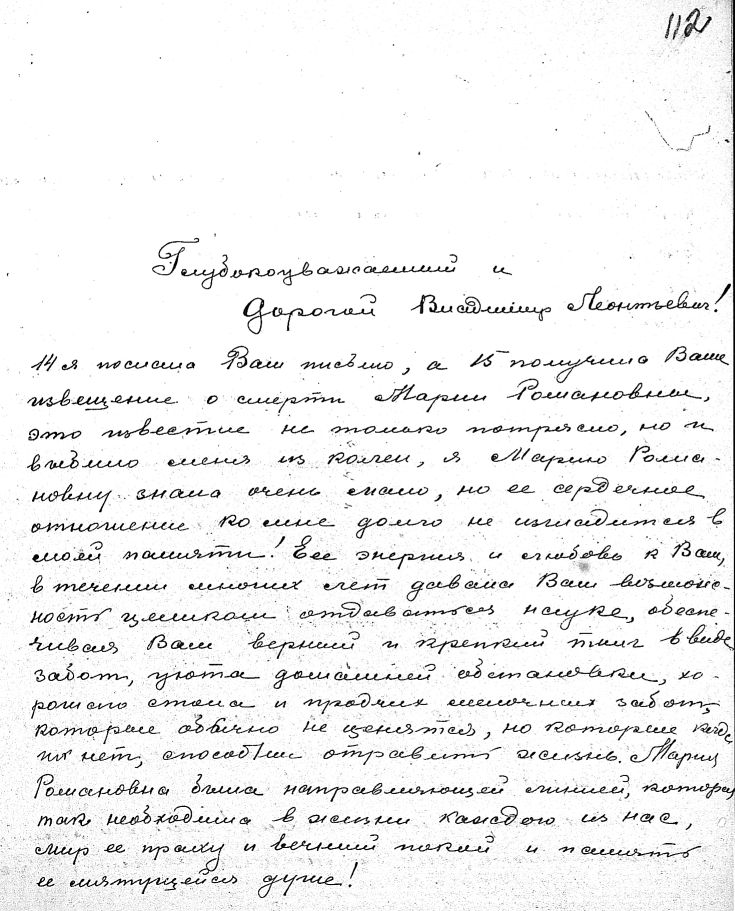 112
Глубокоуважаемый и
Дорогой Владимир Леонтьевич!
14 я послала Вам письмо, а 15 получила Ваше
извещение о смерти Марии Романовны,
это известие не только потрясло, но и
выбило меня из колеи, я Марию Рома-
новну знала очень мало, но ее сердечное
отношение ко мне долго не изгладится в
моей памяти! Ее энергия и любовь к Вам,
в течении многих лет давала Вам возмож-
ность целиком отдаваться науке, обеспе-
чивая Вам верный и крепкий тыл в виде
забот, уюта домашней обстановки, хо-
рошего стола и прочих мелочных забот,
которые обычно не ценятся, но которые когда
их нет, способны отравить жизнь. Мария
Романовна была направляющей линией, которая
так необходима в жизни каждого из нас,
мир ее праху и вечный покой и память
ее мятущейся душе!